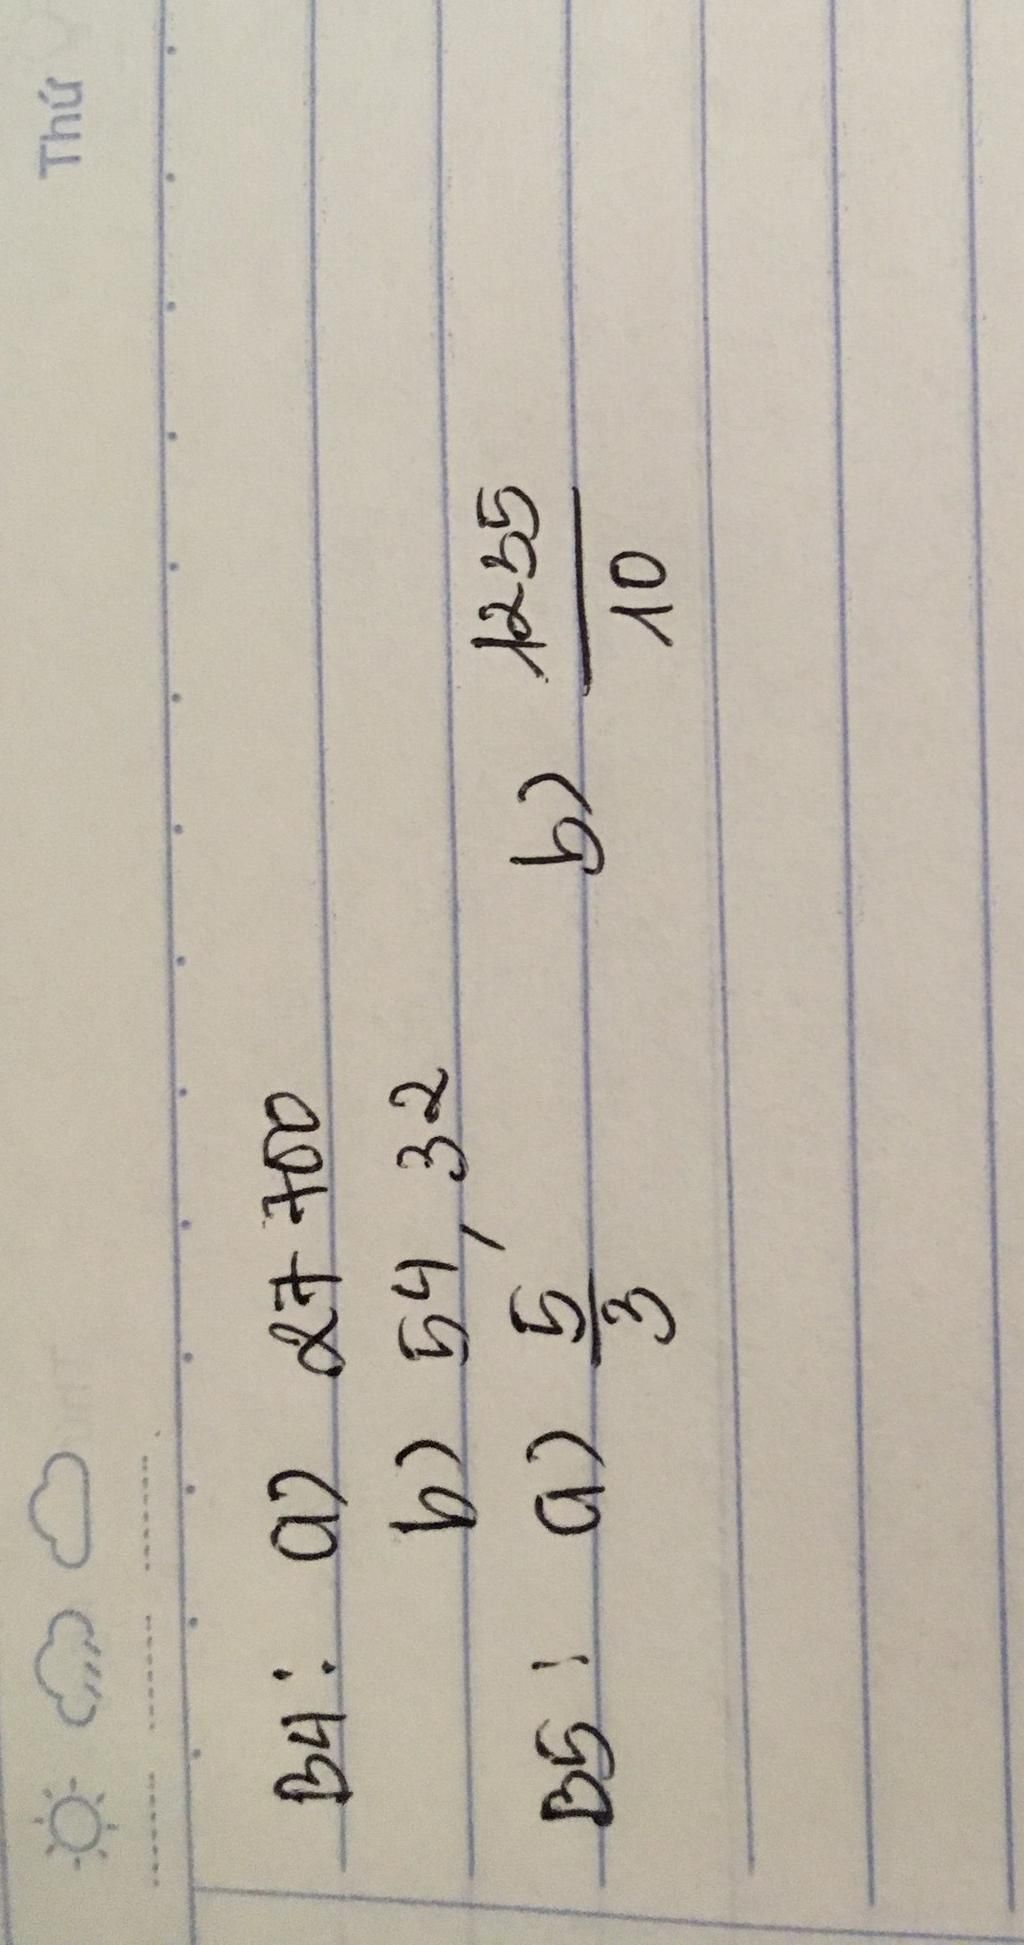 Thứ
B4: a) 27 700
b) 54,32
B5: a) 5/3 b) 1255/10